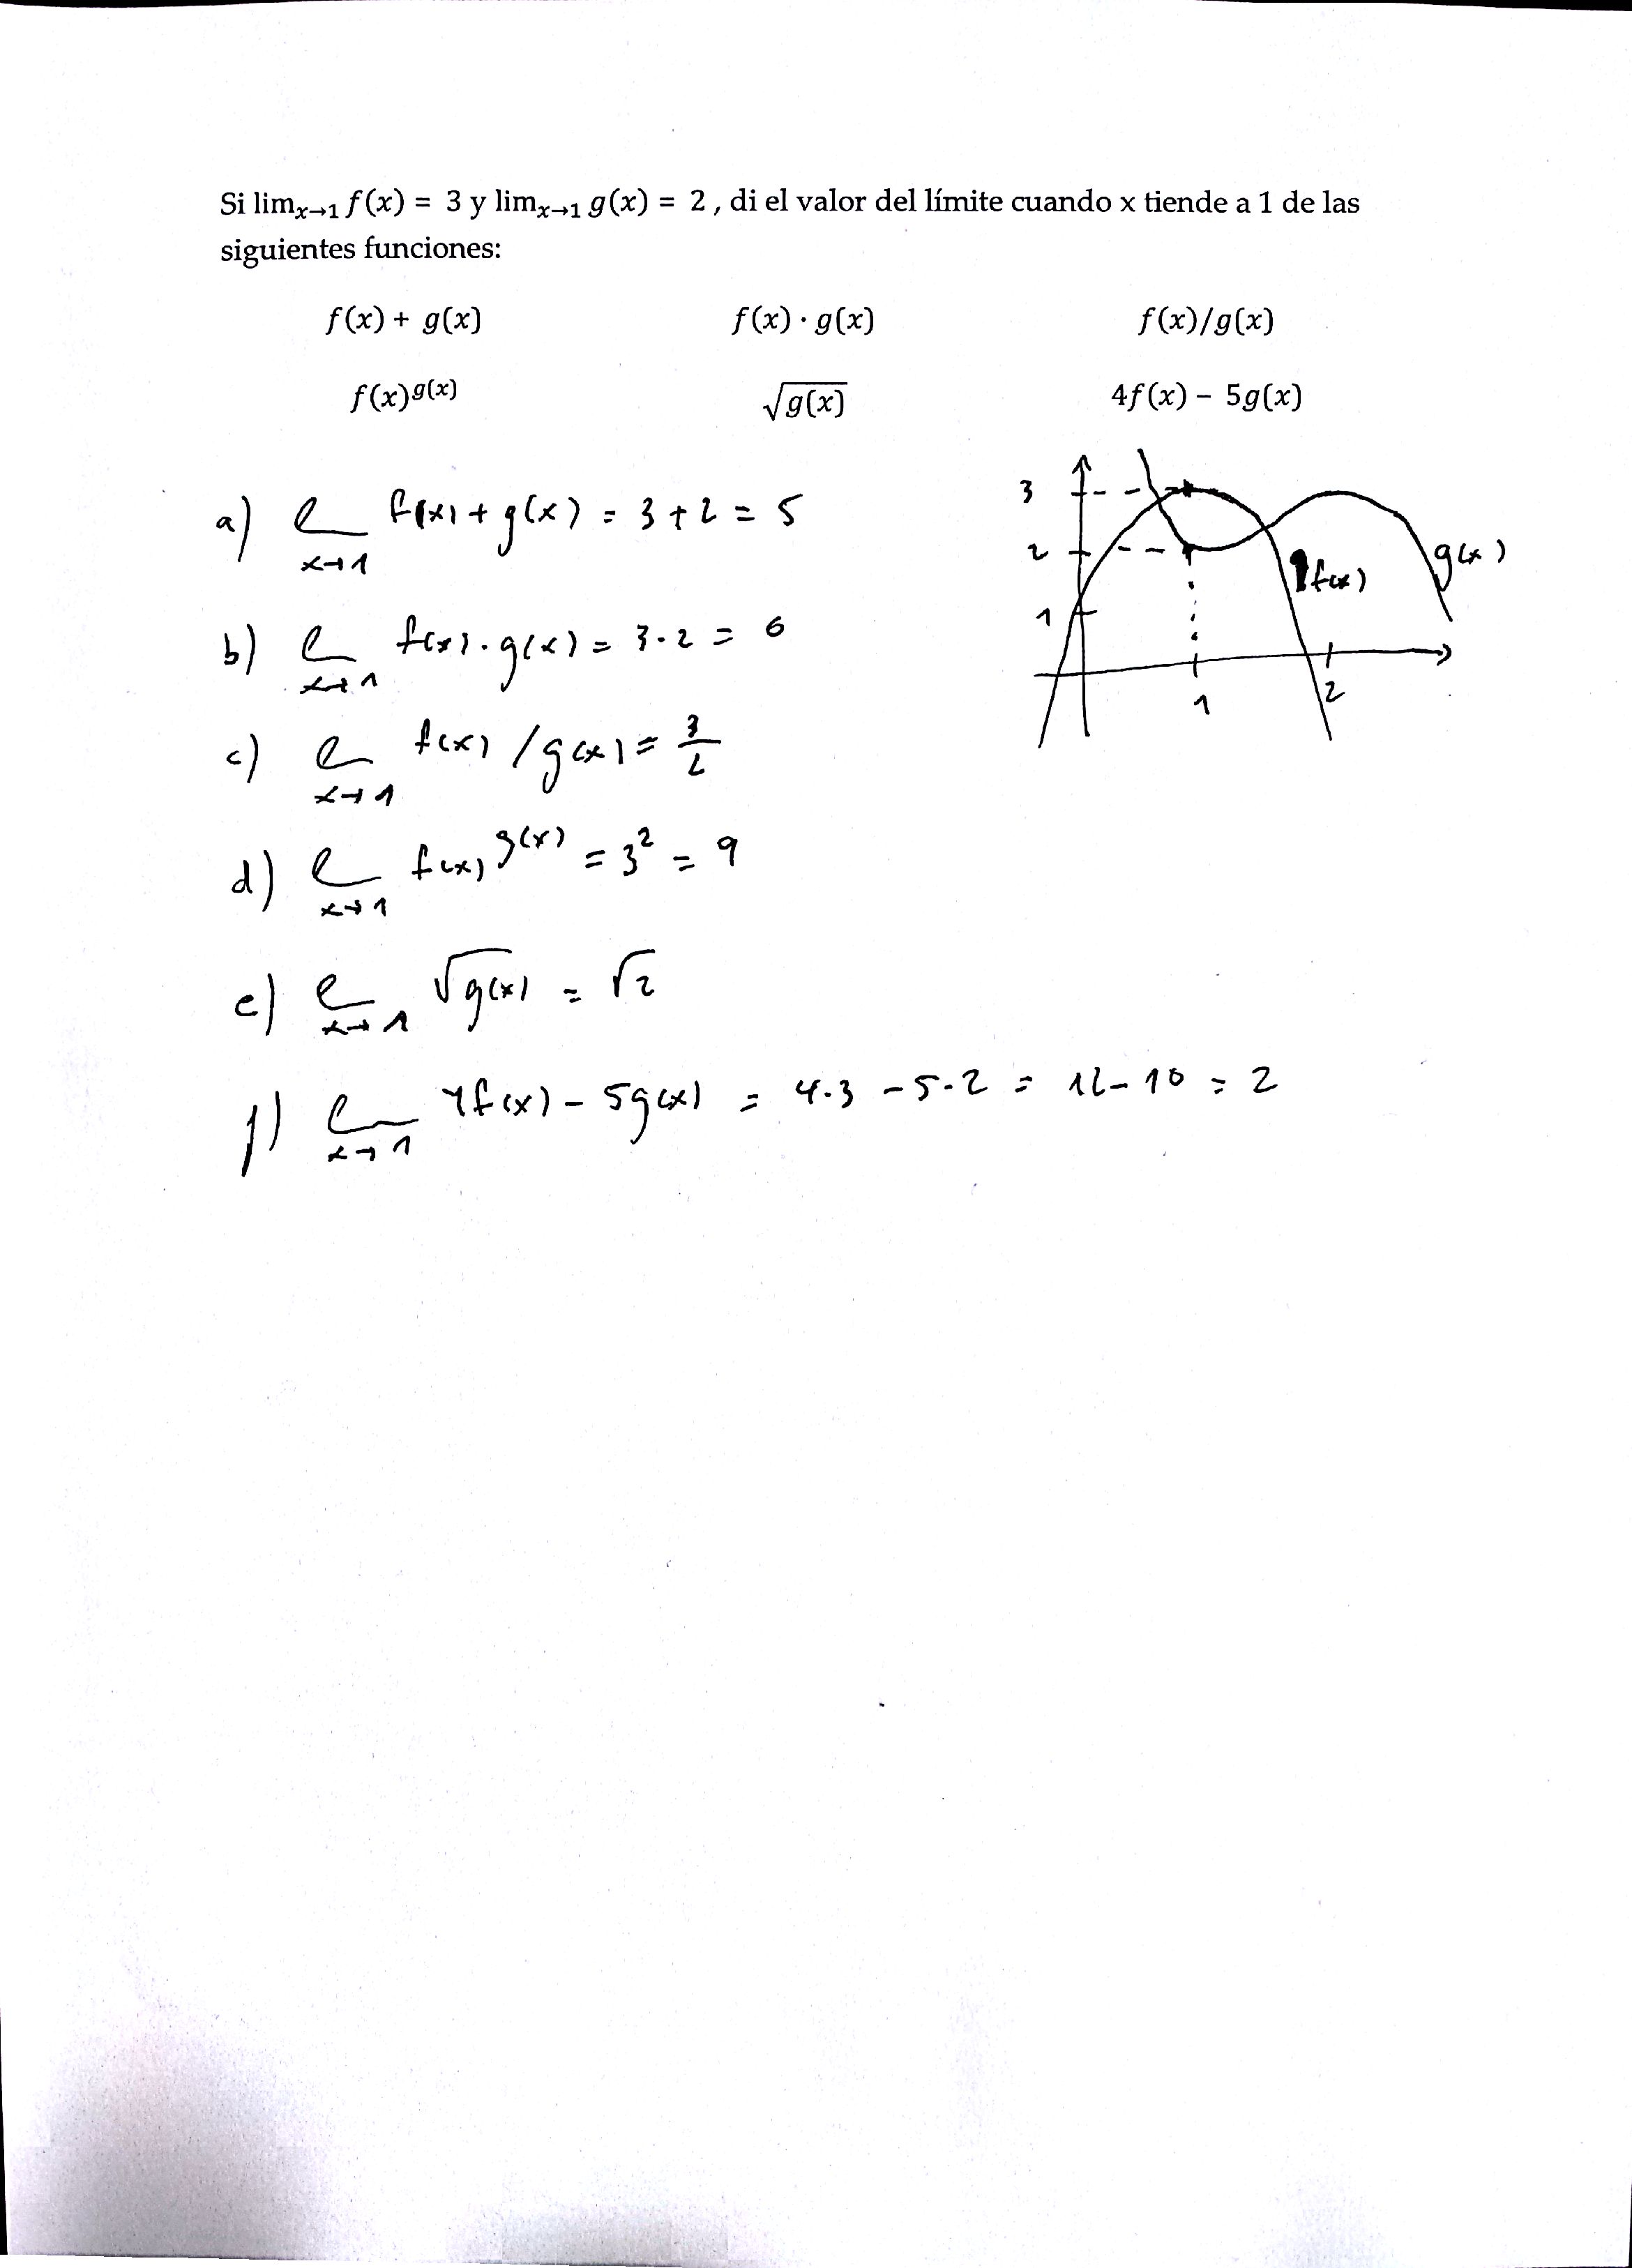 Si lim x→1 f(x) = 3 y lim x→1 g(x) = 2 , di el valor del límite cuando x tiende a 1 de las
siguientes funciones:
f(x) + g(x) f(x) · g(x) f(x)/g(x)
f(x)^g(x) √g(x) 4f(x) − 5g(x)
a) l x→1 f(x) + g(x) = 3 + 2 = 5
b) l x→1 f(x) · g(x) = 3 · 2 = 6
c) l x→1 f(x) / g(x) = 3/2
d) l x→1 f(x)^g(x) = 3² = 9
e) l x→1 √g(x) = √2
f) l x→1 4f(x) − 5g(x) = 4·3 − 5·2 = 12 − 10 = 2
3
2
1
f(x)
g(x)
1
2